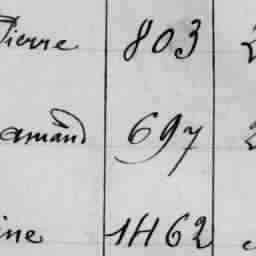 Pierre 803 2
amand 697 2
ine 1462